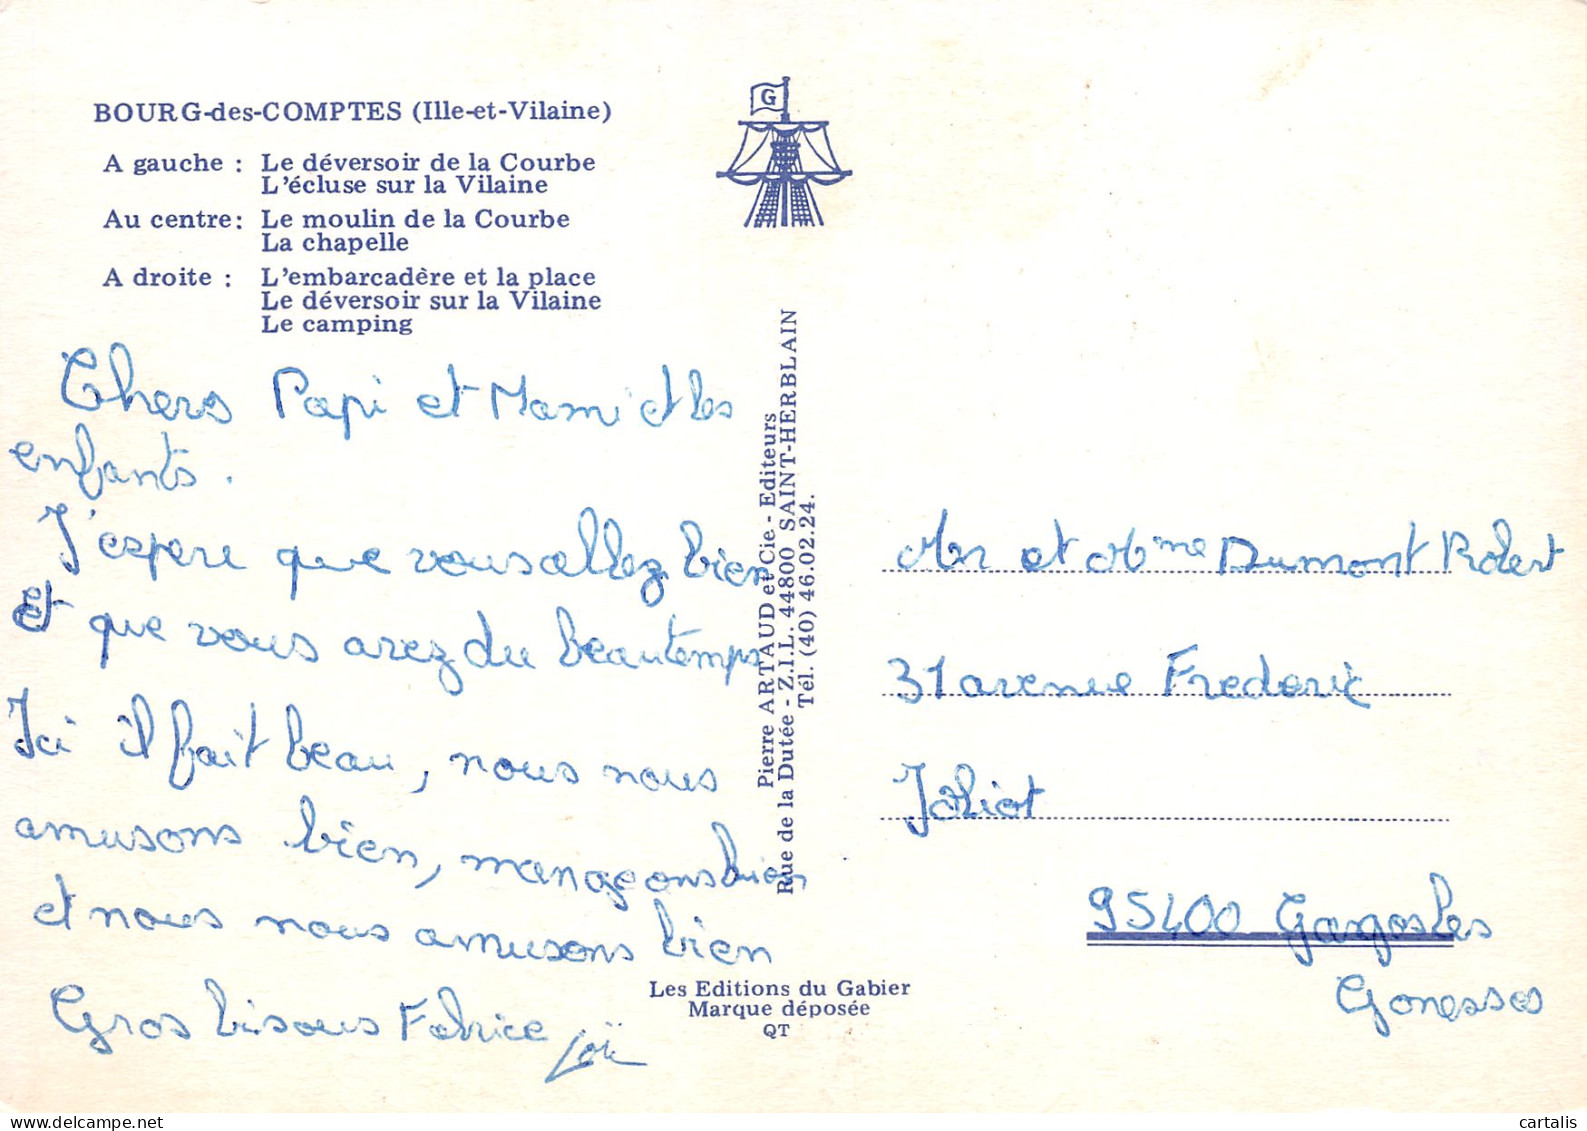 BOURG-des-COMPTES (Ille-et-Vilaine)
A gauche : Le déversoir de la Courbe
L'écluse sur la Vilaine
Au centre: Le moulin de la Courbe
La chapelle
A droite : L'embarcadère et la place
Le déversoir sur la Vilaine
Le camping
Chers Papi et Mami et les
enfants.
J'espere que vous allez bien
Et que vous avez du beau temps
Ici il fait beau, nous nous
amusons bien, mangeons bien
et nous nous amusons bien
Gros bisous Fabrice Loïc
G
Pierre ARTAUD et Cie - Editeurs
Rue de la Dutée - Z.I.L. 44800 SAINT-HERBLAIN
Tél. (40) 46.02.24.
Les Editions du Gabier
Marque déposée
QT
Mr et Mme Dumont Robert
31 avenue Frederic
Joliot
95400 Gargosles
Gonesses
cartalis